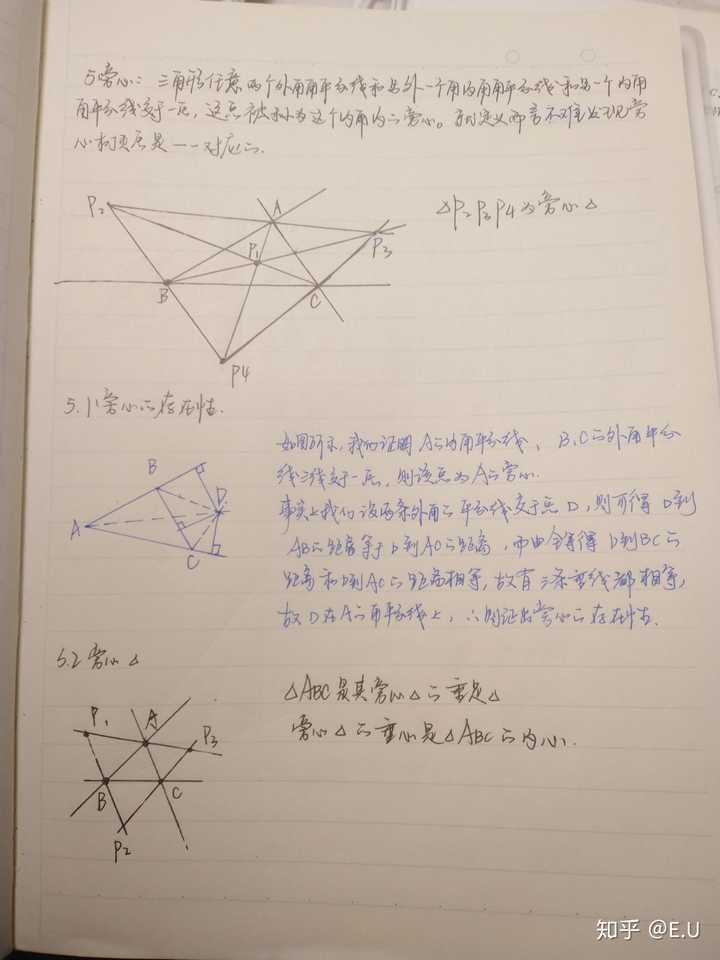 5 旁心: 三角形任意两个外角角平分线和另外一个角的角平分线和另一个内角
角平分线交于一点, 这点被称为这个内角的旁心。而定义而言不难发现旁
心和顶点是一一对应的.
P2 A P3 P1 B C P4
△P2P3P4为旁心△
5.1 旁心的存在性.
A B C D
如图所示, 我们证明A的内角平分线、B、C的外角平分
线三线交于一点, 则该点为A的旁心.
事实上我们设两条外角的平分线交于点D, 则可得D到
AB的距离等于D到AC的距离, 而由全等得D到BC的
距离和D到AC的距离相等, 故有三条垂线都相等,
故D在A的角平分线上, ∴则证出旁心的存在性.
5.2 旁心△
P1 A P3 B C P2
△ABC是其旁心△的垂足△
旁心△的垂心是△ABC的内心.
知乎 @E.U